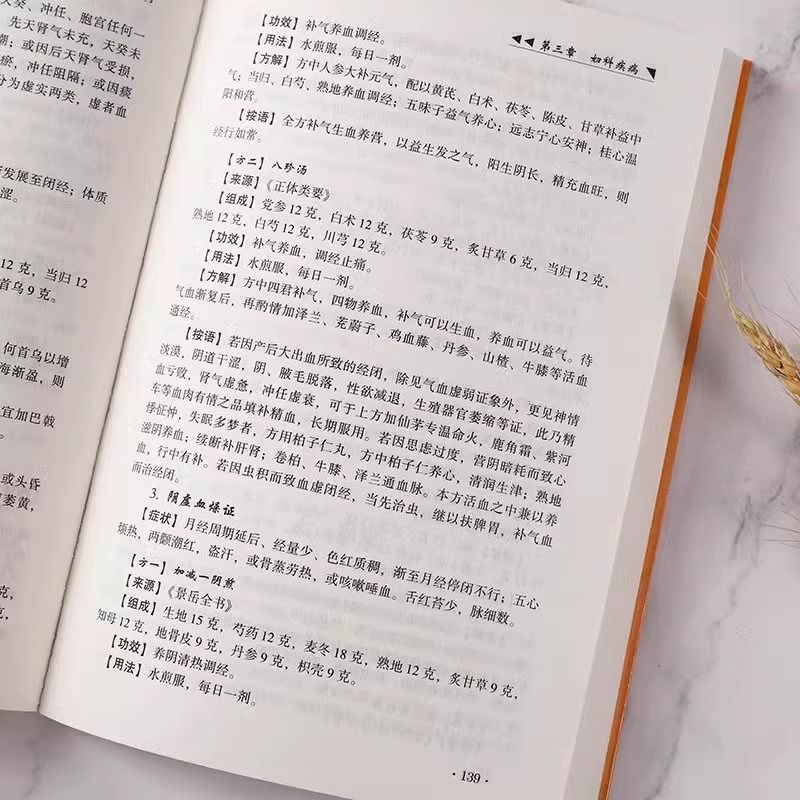 癸、冲任、胞宫任何一
先天肾气未充，天癸未
潮；或因后天肾气受损，
瘀，冲任阻隔；或因痰
分为虚实两类，虚者血
发展至闭经；体质
涩。
12 克，当归 12
首乌 9 克。
何首乌以增
海渐盈，则
宜加巴戟
或头昏
萎黄，
克，
克，
◀◀ 第三章 妇科疾病
【功效】补气养血调经。
【用法】水煎服，每日一剂。
【方解】方中人参大补元气，配以黄芪、白术、茯苓、陈皮、甘草补益中
气；当归、白芍、熟地养血调经；五味子益气养心；远志宁心安神；桂心温
阳和营。
【按语】全方补气生血养营，以益生发之气，阳生阴长，精充血旺，则
经行如常。
【方二】八珍汤
【来源】《正体类要》
【组成】党参 12 克，白术 12 克，茯苓 9 克，炙甘草 6 克，当归 12 克，
熟地 12 克，白芍 12 克，川芎 12 克。
【功效】补气养血，调经止痛。
【用法】水煎服，每日一剂。
【方解】方中四君补气，四物养血，补气可以生血，养血可以益气。待
气血渐复后，再酌情加泽兰、茺蔚子、鸡血藤、丹参、山楂、牛膝等活血
通经。
【按语】若因产后大出血所致的经闭，除见气血虚弱证象外，更见神情
淡漠，阴道干涩，阴、腋毛脱落，性欲减退，生殖器官萎缩等证，此乃精
血亏败，肾气虚惫，冲任虚衰，可于上方加仙茅专温命火，鹿角霜、紫河
车等血肉有情之品填补精血，长期服用。若因思虑过度，营阴暗耗而致心
悸怔忡，失眠多梦者，方用柏子仁丸，方中柏子仁养心，清润生津；熟地
滋阴养血；续断补肝肾；卷柏、牛膝、泽兰通血脉。本方活血之中兼以养
血，行中有补。若因虫积而致血虚闭经，当先治虫，继以扶脾胃，补气血
而治经闭。
3. 阴虚血燥证
【症状】月经周期延后、经量少、色红质稠，渐至月经停闭不行；五心
烦热，两颧潮红，盗汗，或骨蒸劳热，或咳嗽唾血。舌红苔少，脉细数。
【方一】加减一阴煎
【来源】《景岳全书》
【组成】生地 15 克，芍药 12 克，麦冬 18 克，熟地 12 克，炙甘草 9 克，
知母 12 克，地骨皮 9 克，丹参 9 克，枳壳 9 克。
【功效】养阴清热调经。
【用法】水煎服，每日一剂。
· 139 ·